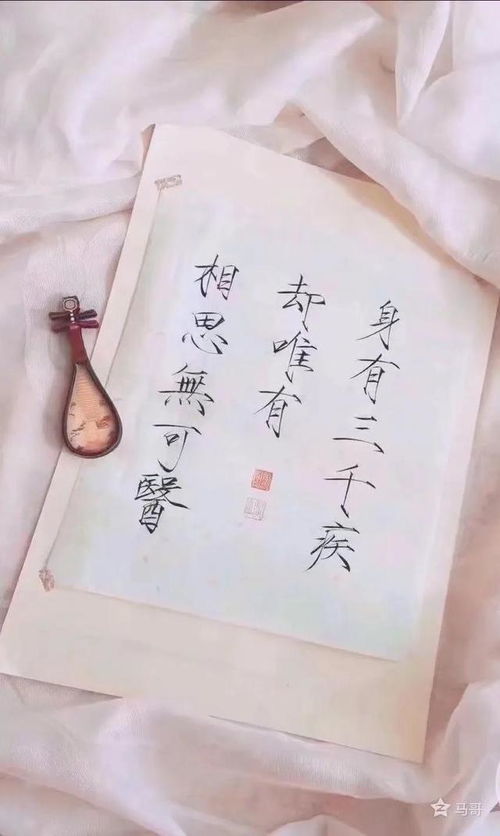 身有三千疾
却唯有
相思無可醫
马哥